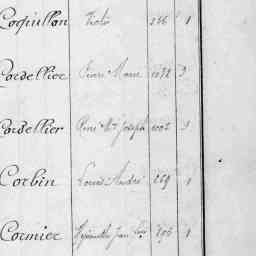 Coquillon Victor 266 1
Cordellier Pierre Marie 1038 9
Cordellier René Mie Joseph 1002 9
Corbin Louis André 269 1
Cormier Hyacinthe Jean 1